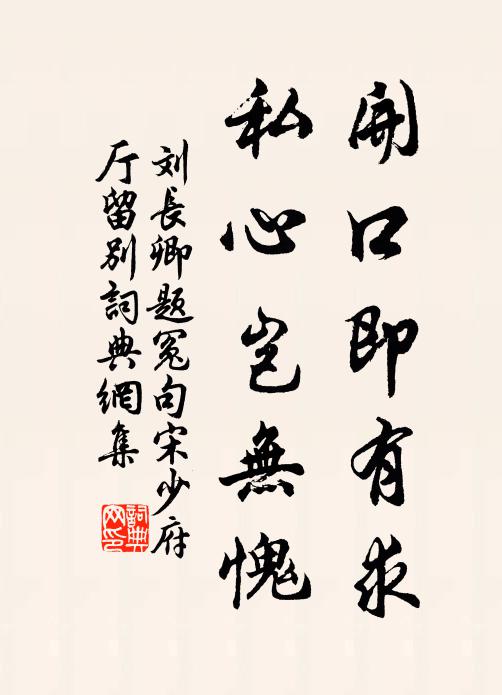 開口即有求
私心豈無愧
刘長卿題冤句宋少府
厅留别詞典網集
詞典
网印